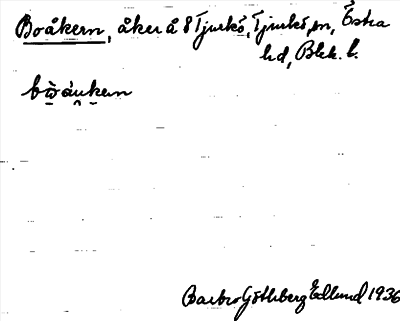 Boåkern, åker å 8 Tjurkö, Tjurkö sn, Östra
hd, Blek. l.
bo̠áu̠ke̠rn
Barbro Götheberg Edlund 1936